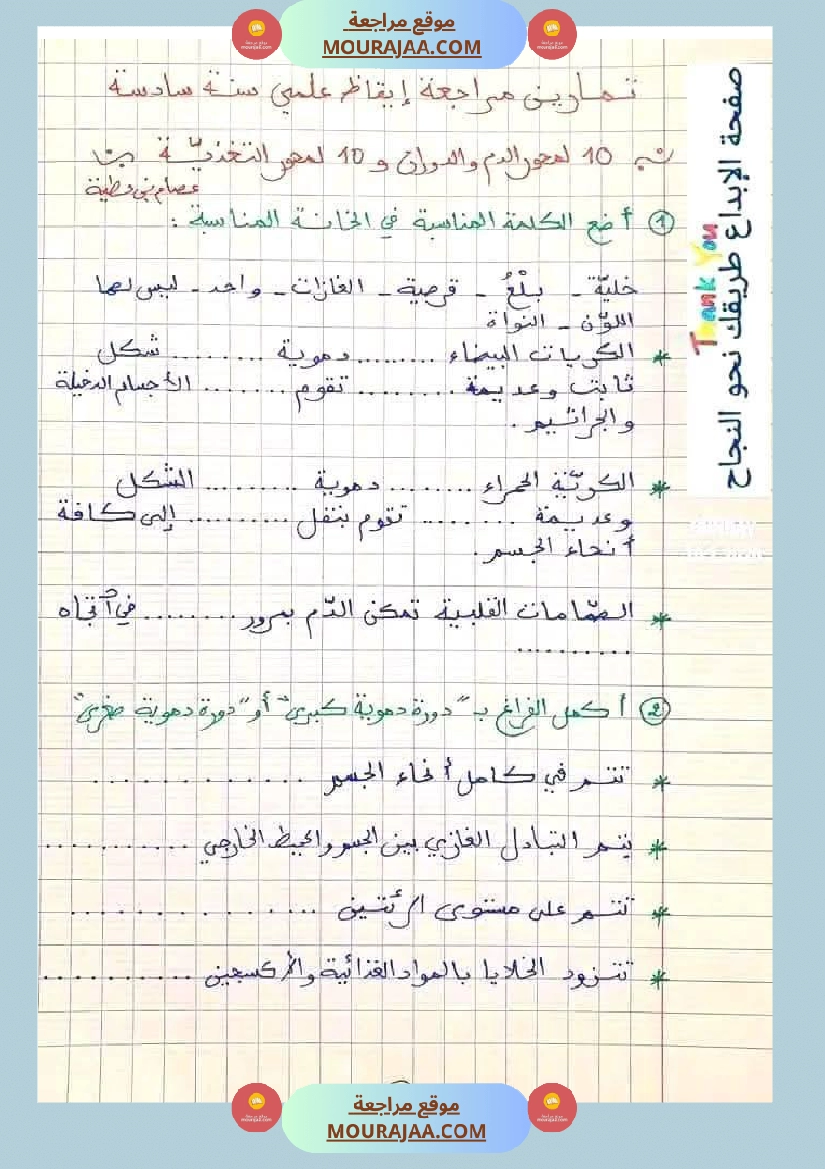 موقع مراجعة
MOURAJAA.COM
تمارين مراجعة إيقاظ علمي سنة سادسة
10 لمحور الدم والدوران و 10 لمحور التغذيّة
عصام بني عطية
① أضع الكلمة المناسبة في الخانة المناسبة :
خليّة - بلْعُ - قرصية - الغازات - واحد - ليس لها
اللوْن - النواة
* الكريات البيضاء ......... دموية ......... شكل
ثابت وعديمة ......... تقوم ......... الأجسام الدخيلة
والجراثيم .
* الكريّة الحمراء ......... دموية ......... الشكل
وعديمة ......... تقوم بنقل ......... إلى كافة
أنحاء الجسم .
* الصمّامات القلبية تمكن الدّم بمرور ......... في اتجاه
..........
② أكمل الفراغ بـ "دورة دموية كبرى" أو "دورة دموية صغرى"
* تتم في كامل أنحاء الجسم .............
* يتم التبادل الغازي بين الجسم والمحيط الخارجي ............
* تتم على مستوى الرئتين ...............
* تتزود الخلايا بالمواد الغذائية والأكسجين ............
صفحة الإبداع طريقك نحو النجاح
Thank You
موقع مراجعة
MOURAJAA.COM